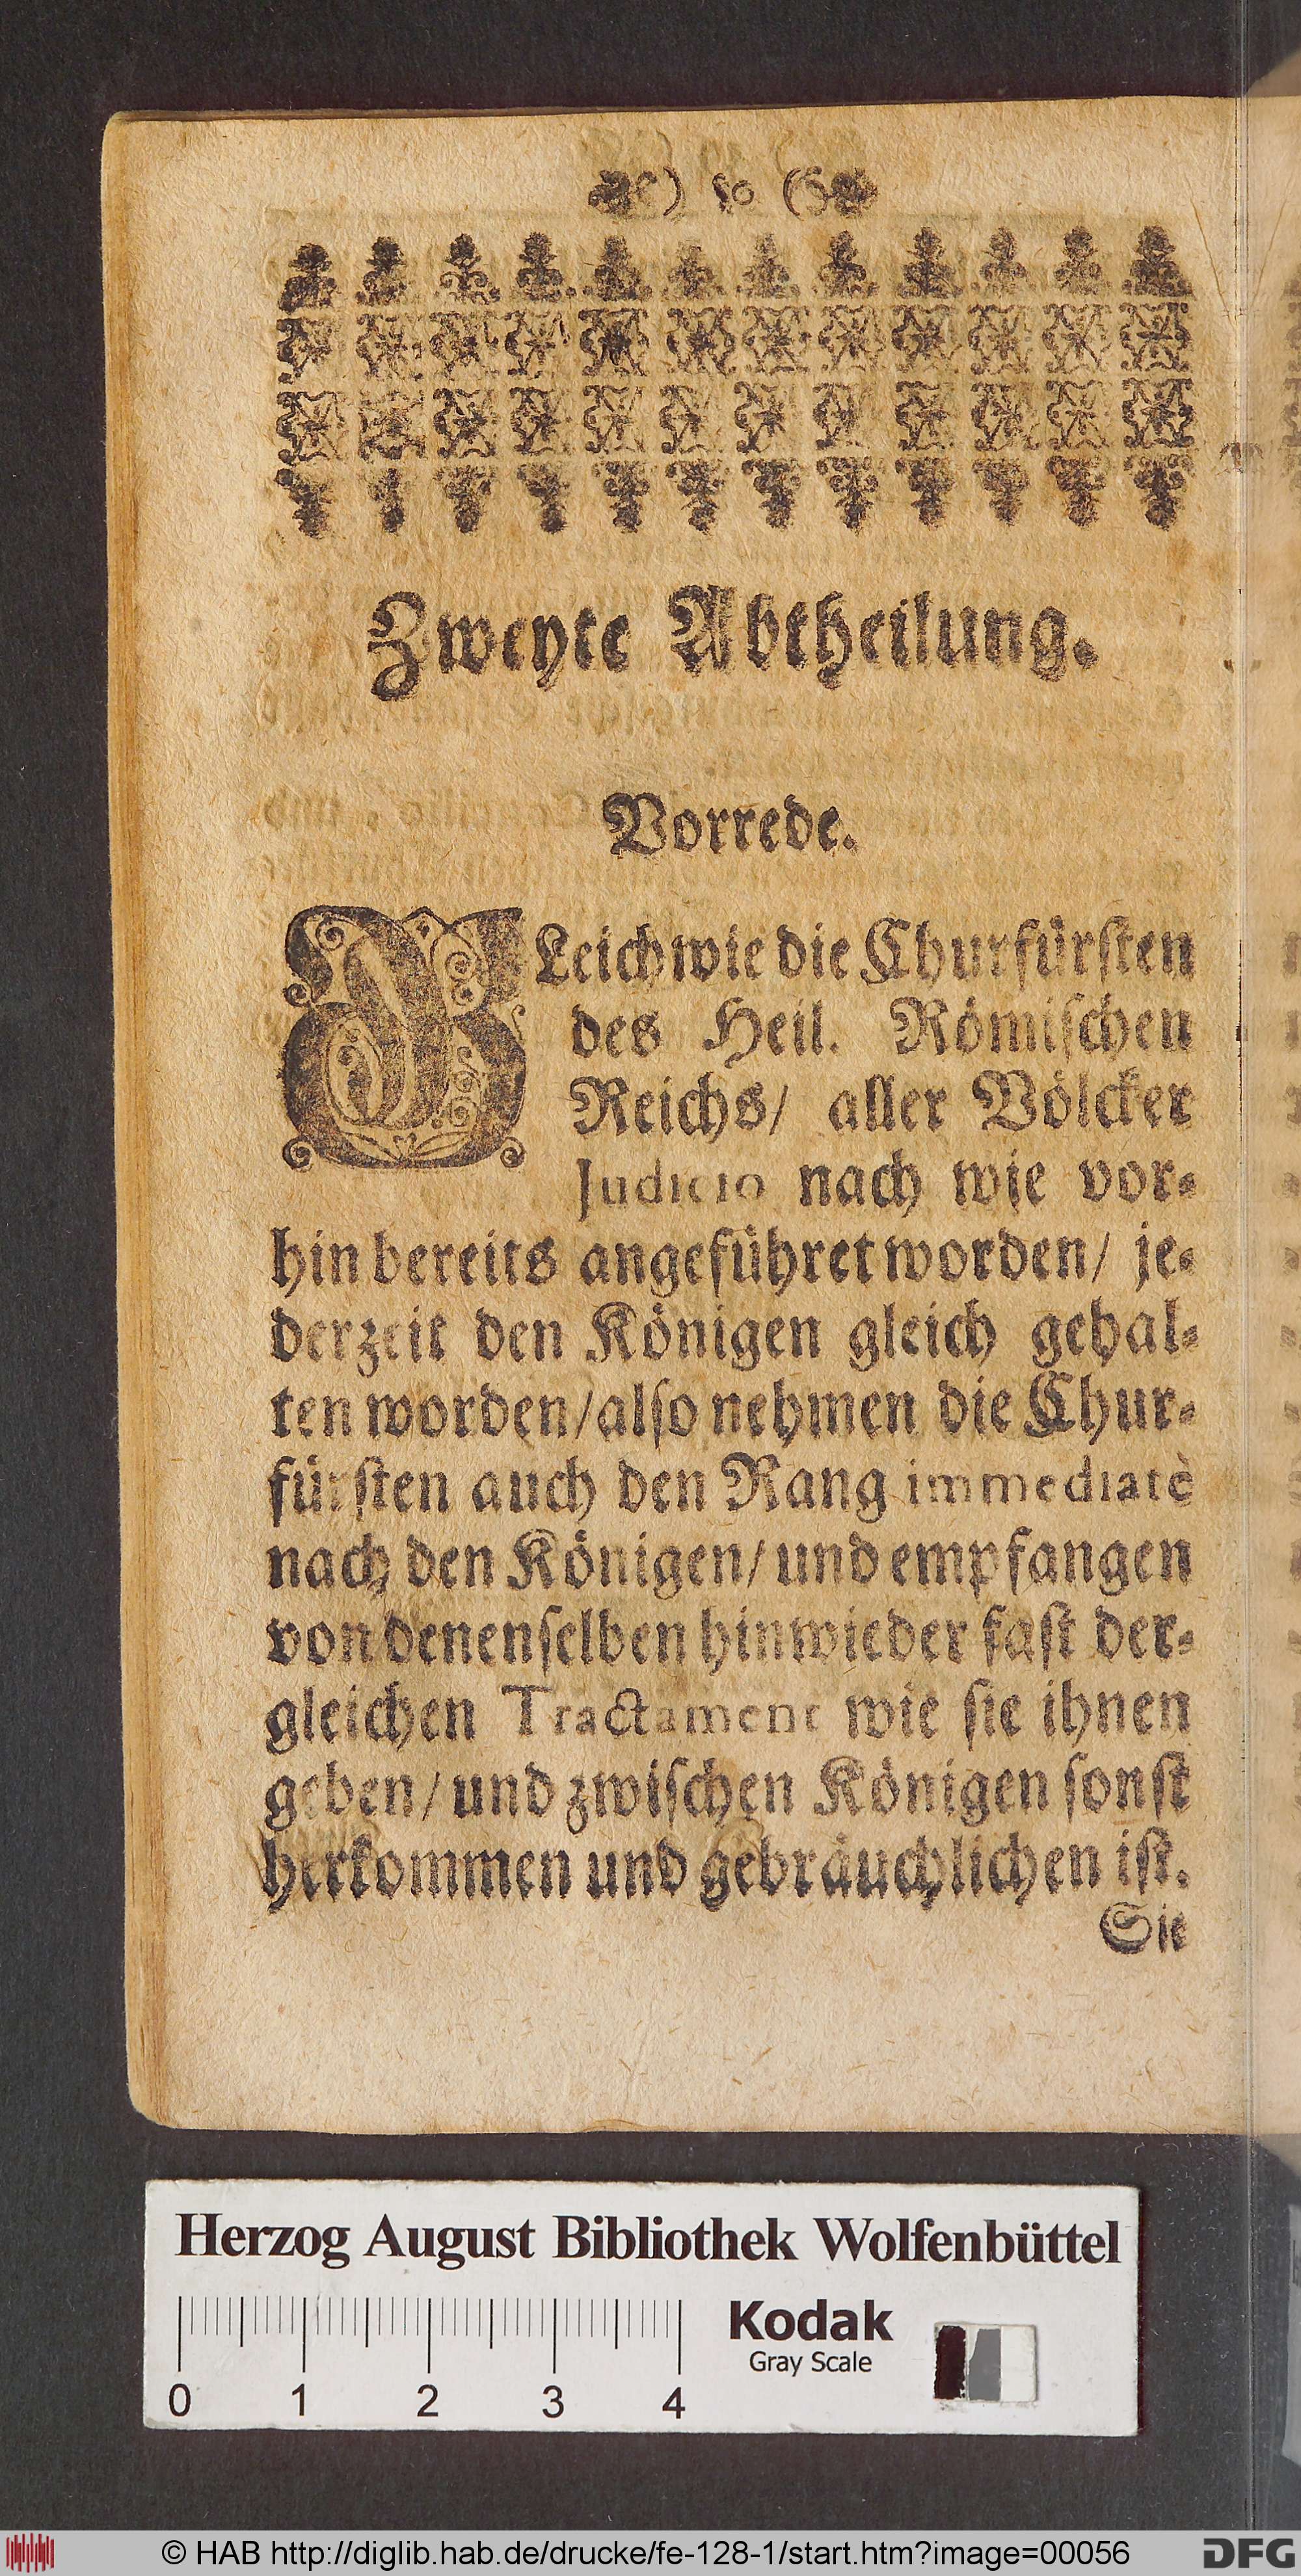 ) 50 (
Zweyte Abtheilung.
Vorrede.
GLeichwie die Churfürsten
des Heil. Römischen
Reichs/ aller Völcker
Judicio nach wie vor-
hin bereits angeführet worden/ je-
derzeit den Königen gleich gehal-
ten worden/ also nehmen die Chur-
fürsten auch den Rang immediatè
nach den Königen/ und empfangen
von denenselben hinwieder fast der-
gleichen Tractament wie sie ihnen
geben/ und zwischen Königen sonst
herkommen und gebräuchlichen ist.
Sie
Herzog August Bibliothek Wolfenbüttel
Kodak
Gray Scale
0 1 2 3 4
© HAB http://diglib.hab.de/drucke/fe-128-1/start.htm?image=00056
DFG